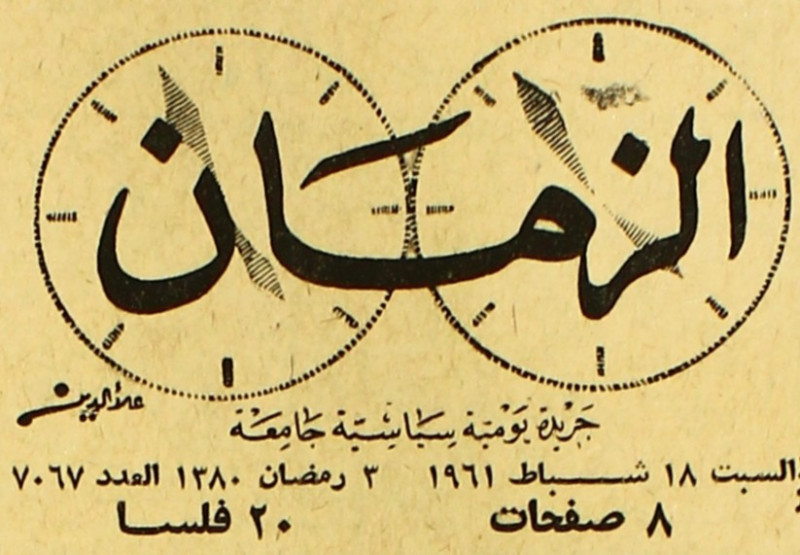 الزمان
علاء الدين
جَريْدة يَوميَّة سِيَاسْيّة جَامِعَة
السبت ١٨ شباط ١٩٦١ ٣ رمضان ١٣٨٠ العدد ٧٠٦٧
٨ صفحات ٢٠ فلسا